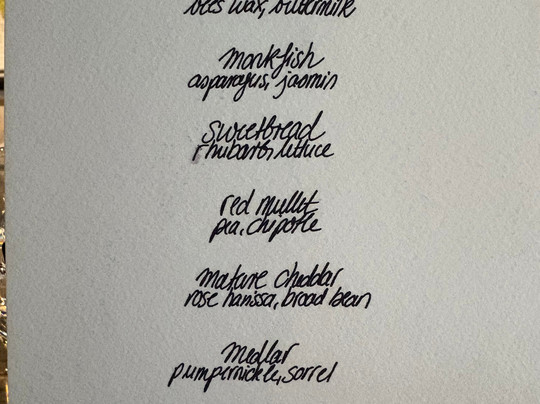 bees wax, buttermilk
monkfish
asparagus, jasmin
sweetbread
rhubarb, lettuce
red mullet
pea, chipotle
mature cheddar
rose harissa, broad bean
medlar
pumpernickle, sorrel